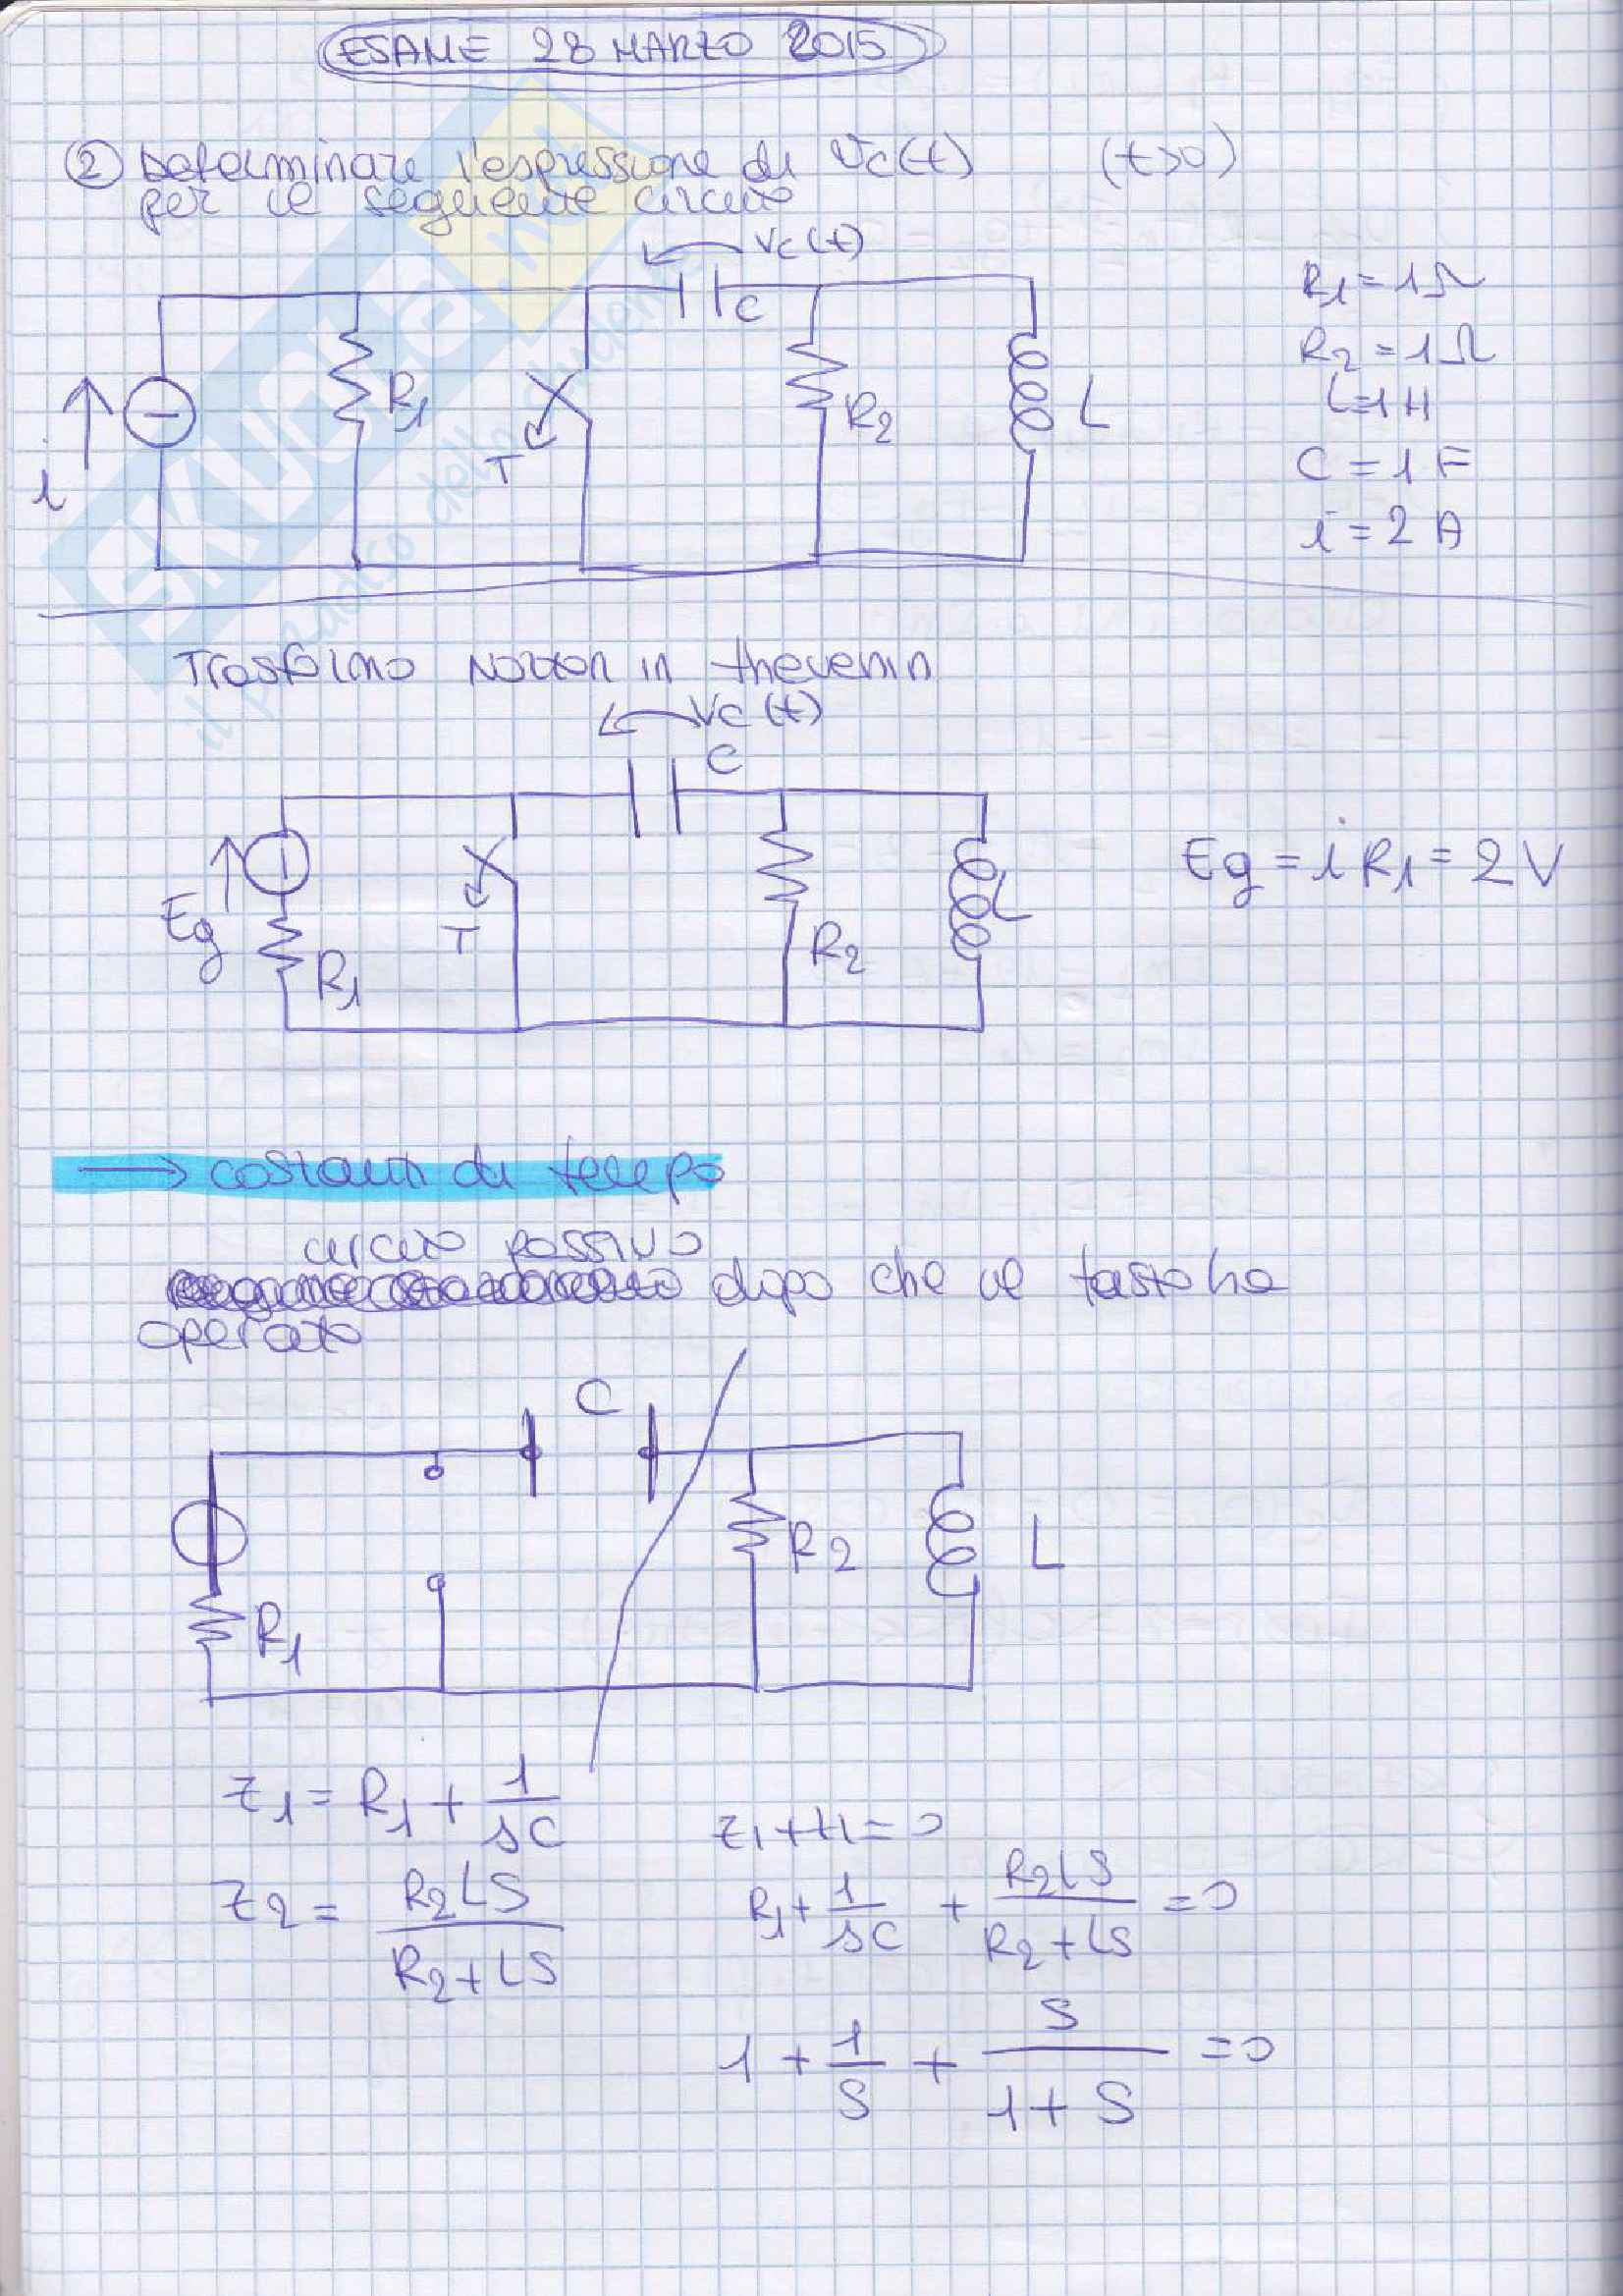 ESAME 28 MARZO 2015
② Determinare l'espressione di Vc(t) (t>0)
per il seguente circuito
Vc(t)
C
R1
T
R2
L
i
R1 = 1Ω
R2 = 1Ω
L=1H
C = 1F
i = 2 A
Trasformo Norton in thevenin
Vc(t)
C
Eg
R1
T
R2
L
Eg = i R1 = 2 V
→ costanti di tempo
circuito passivo
dopo che il tasto ha
operato
C
R1
R2
L
Z1 = R1 + 1/sC
Z1+Z1=0
Z2 = R2LS/R2+LS
R1 + 1/sC + R2LS/R2+LS = 0
1 + 1/S + S/1+S = 0
SKUOLA.net
il paradiso dello studente